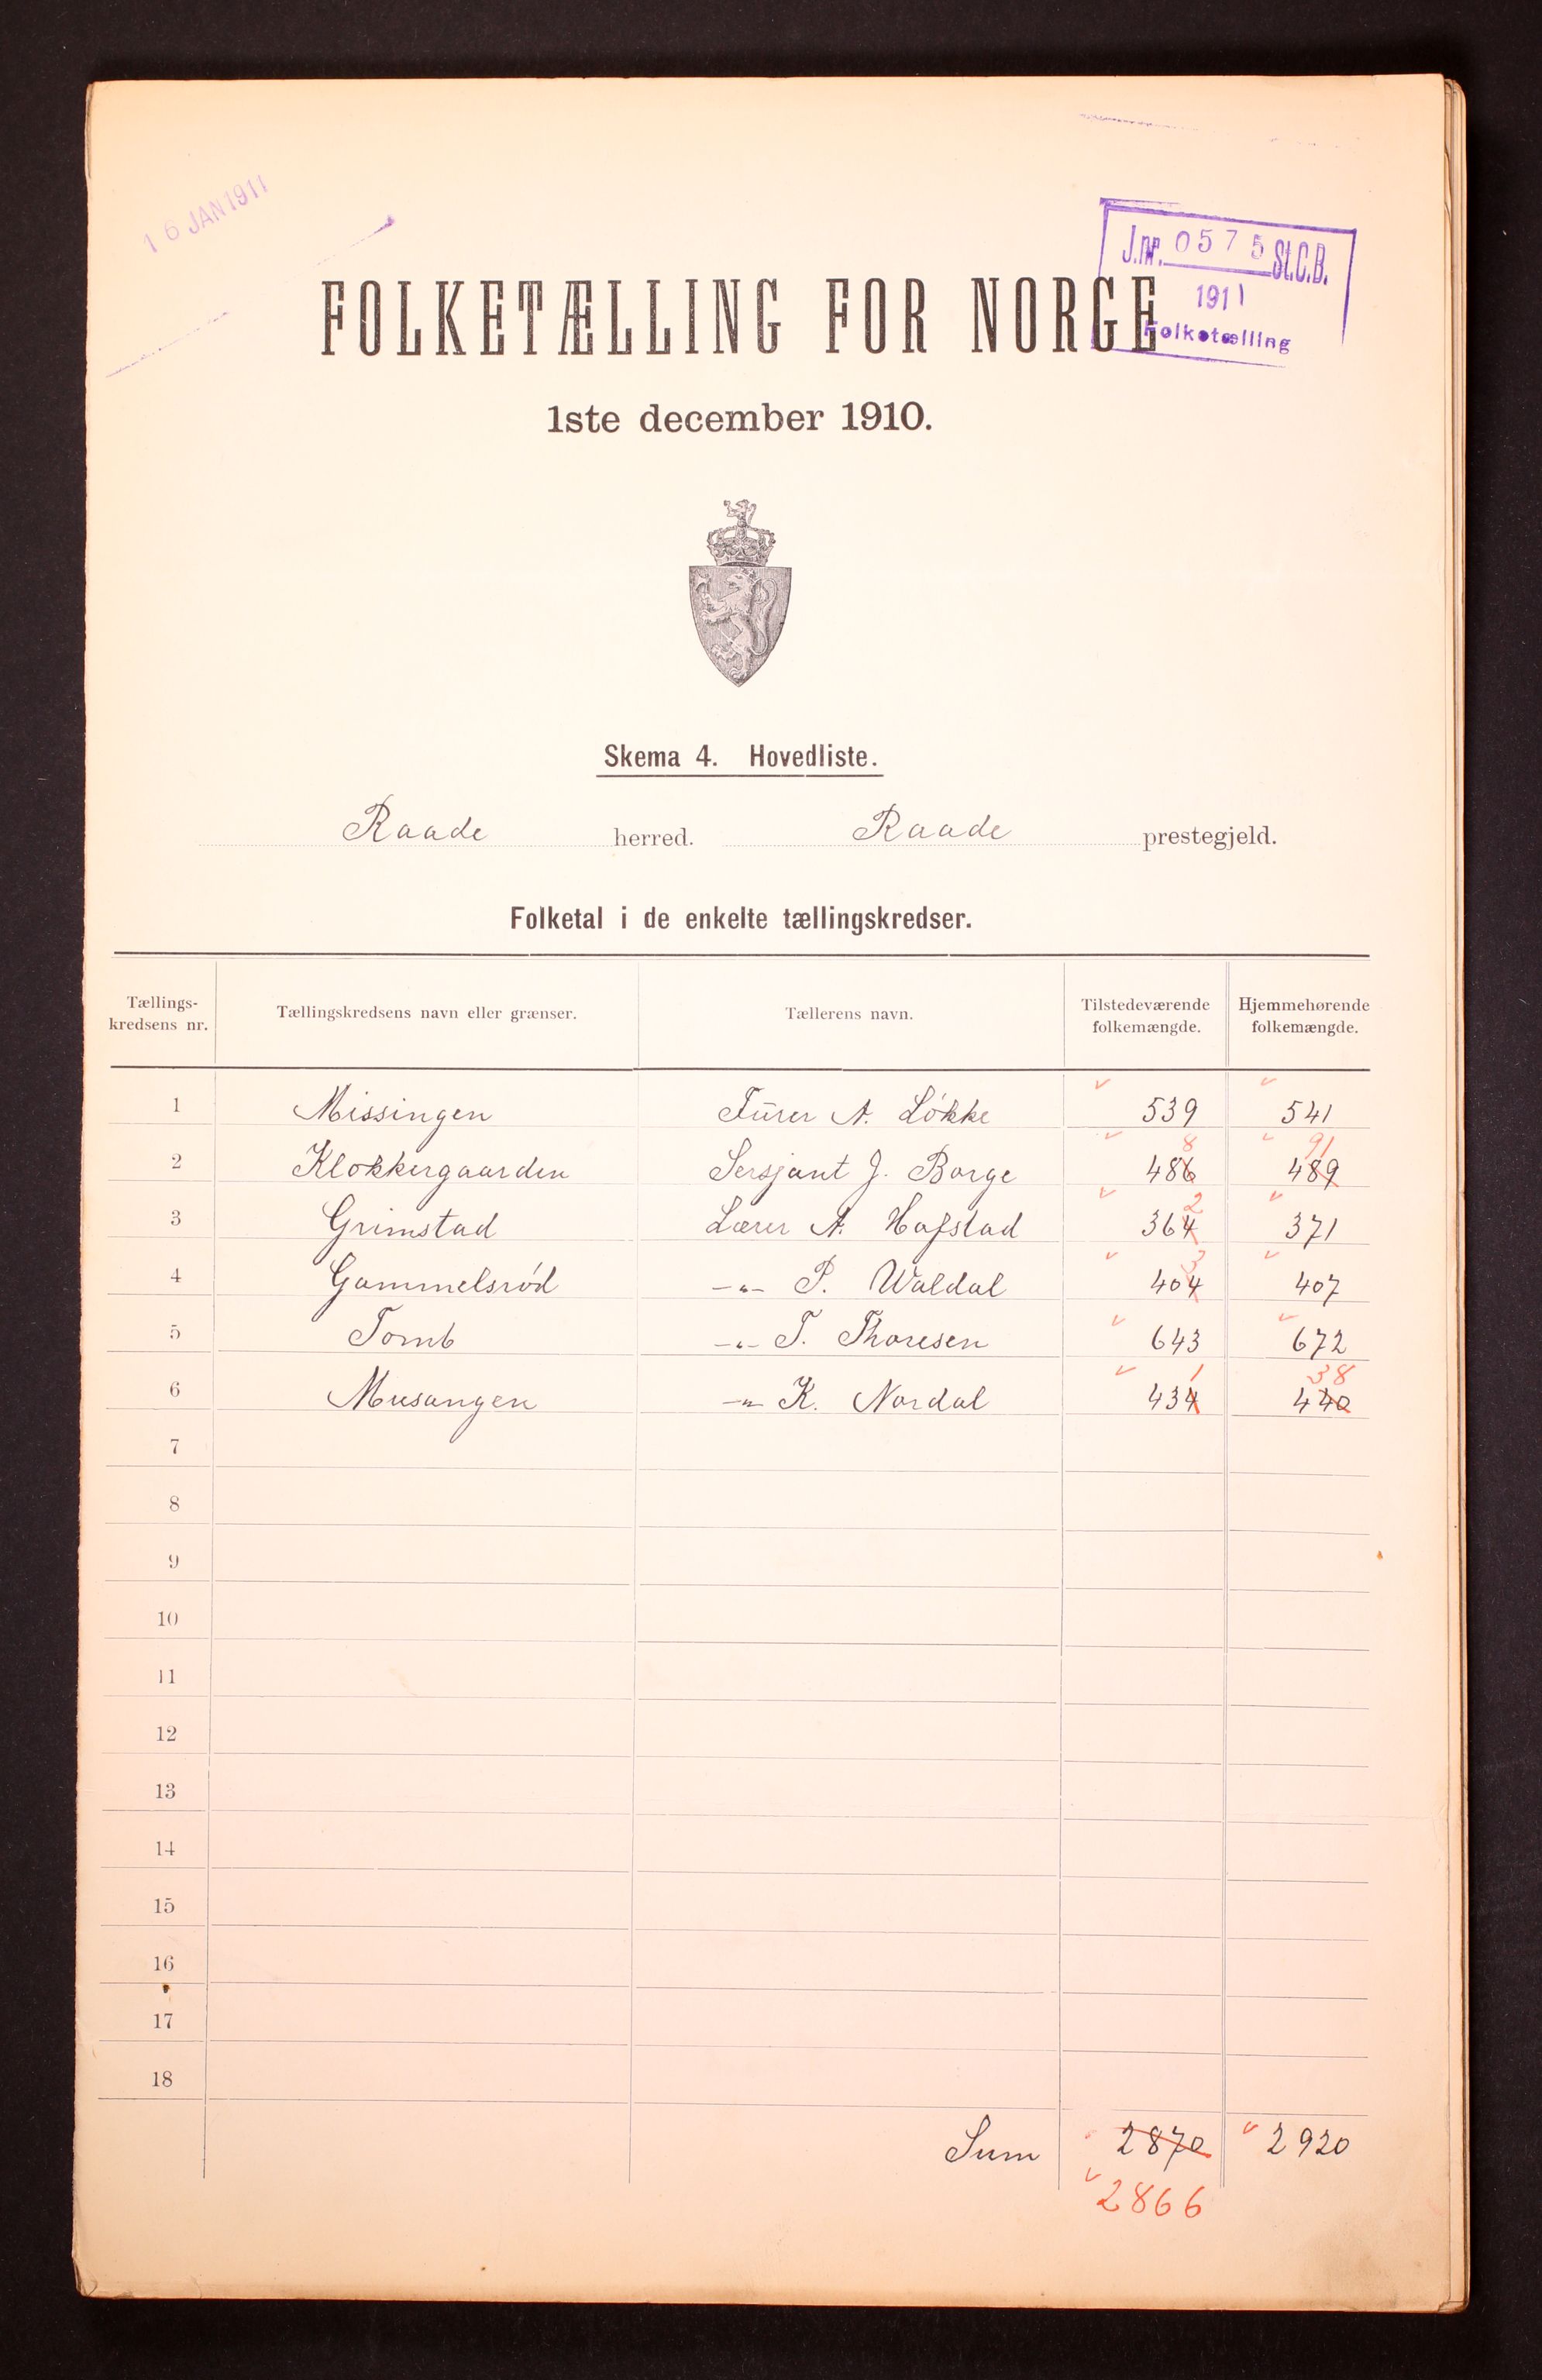 16 JAN 1911
J.nr. 0575 St.C.B.
1911
Folketælling
FOLKETÆLLING FOR NORGE
1ste december 1910.
Skema 4. Hovedliste.
Raade herred. Raade prestegjeld.
Folketal i de enkelte tællingskredser.
Tællings-kredsens nr. Tællingskredsens navn eller grænser. Tællerens navn. Tilstedeværende folkemængde. Hjemmehørende folkemængde.
8 91
1 Missingen Furer A. Løkke 539 541
2 Klokkergaarden Sersjant J. Borge 486 489
2
3 Grimstad Lærer A. Hafstad 364 371
3
4 Gammelsrød -"- P. Waldal 404 407
5 Tomb -"- T. Thoresen 643 672
1 38
6 Musangen -"- K. Nordal 434 440
7
8
9
10
11
12
13
14
15
16
17
18
Sum 2870 2920
2866